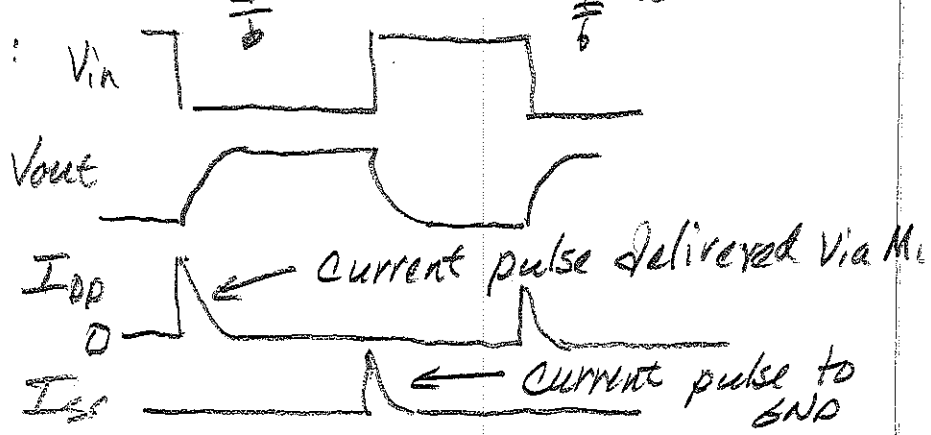 : Vin
Vout
IDD ← Current pulse delivered Via M1
0
ISS ← Current pulse to
GND